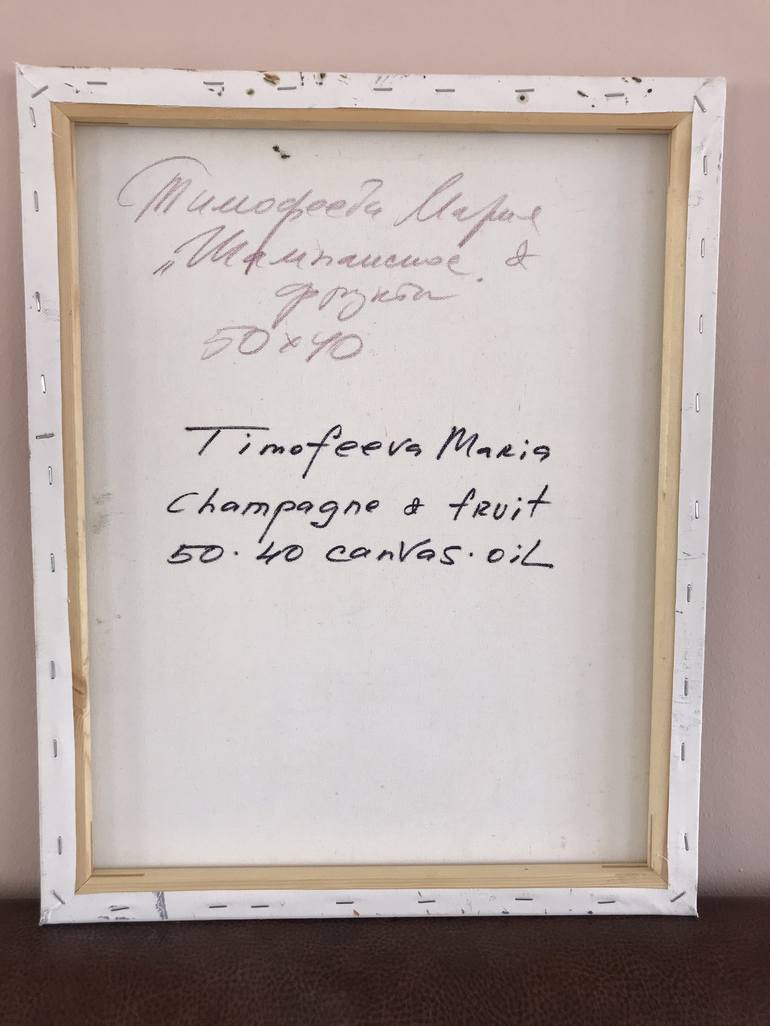 Тимофеева Мария
„Шампанское &
фрукты"
50×40
Timofeeva Maria
Champagne & fruit
50·40 canvas·oil